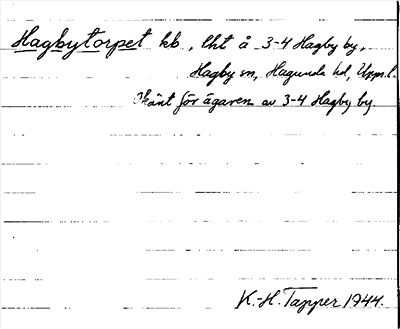 Hagbytorpet kb., lht å 3-4 Hagby by,
Hagby sn, Hagunda hd, Upps. l.
Okänt för ägaren av 3-4 Hagby by.
K.-H. Tapper 1944.